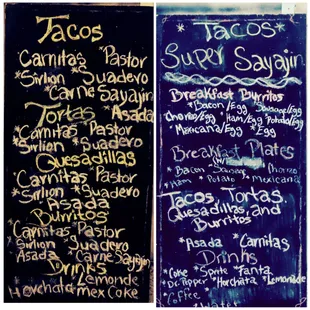 Tacos
*Carnitas *Pastor
*Sirlion *Suadero
*Carne Sayajin
Tortas *Asada
*Carnitas Pastor
*Sirlion *Suadero
Quesadillas
*Carnitas *Pastor
*Sirlion *Suadero
Asada
Burritos
Carnitas Pastor
Sirlion Suadero
Asada *Carne Sayajin
Drinks
Horchata Lemonde
mex Coke
*Tacos*
Super Sayajin
Breakfast Burritos
*Bacon/Egg Sausage/Egg
Chorizo/Egg Ham/Egg Potato/Egg
Mexicana/Egg *Egg
Breakfast Plates
*Bacon Sausage *Chorizo
*Ham Potato *Mexicana
Tacos, Tortas,
Quesadillas, and
Burritos
*Asada *Carnitas
Drinks
*Coke *Sprite *Fanta
*Dr. Pepper *Horchata *Lemonade
Coffee
Water